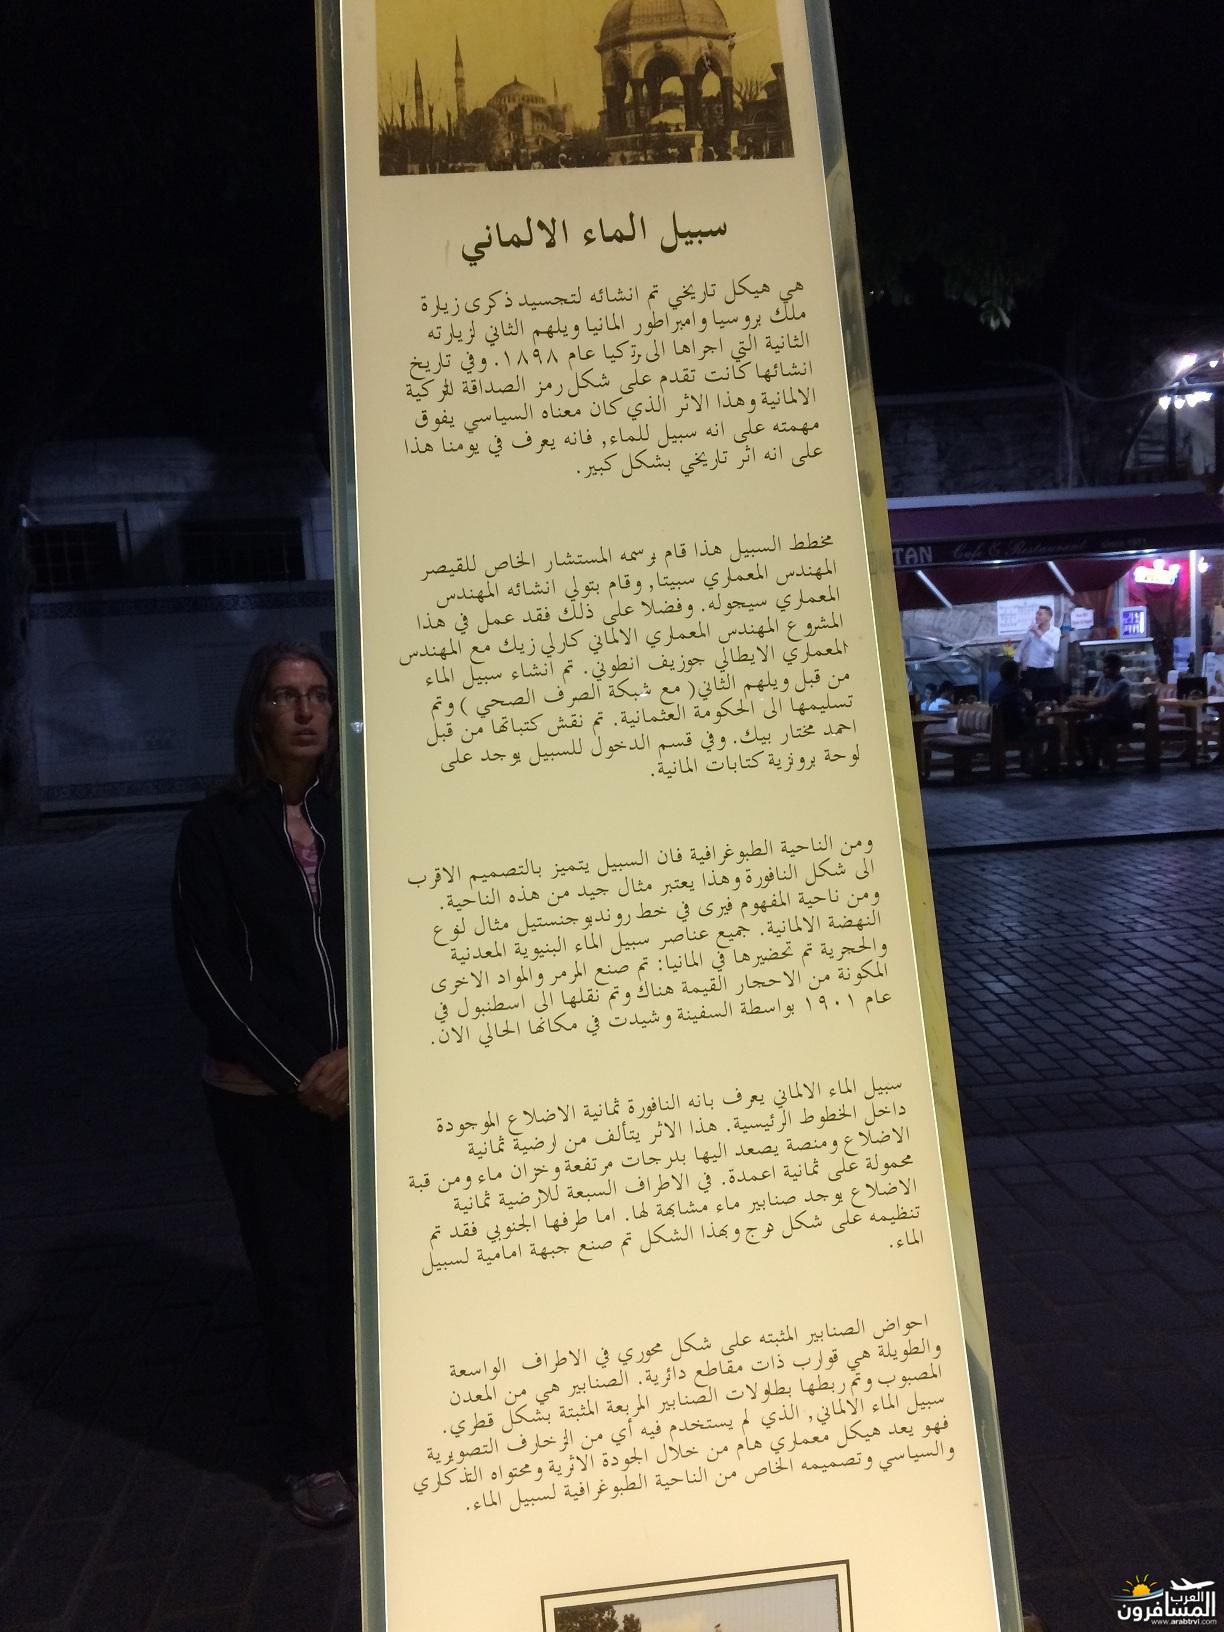 سبيل الماء الالماني
هي هيكل تاريخي تم انشائه لتجسيد ذكرى زيارة
ملك بروسيا وامبراطور المانيا ويلهم الثاني لزيارته
الثانية التي اجراها الى تركيا عام ١٨٩٨. وفي تاريخ
انشائها كانت تقدم على شكل رمز الصداقة للتركية
الالمانية وهذا الاثر الذي كان معناه السياسي يفوق
مهمته على انه سبيل للماء, فانه يعرف في يومنا هذا
على انه اثر تاريخي بشكل كبير.
مخطط السبيل هذا قام برسمه المستشار الخاص للقيصر
المهندس المعماري سبيتا, وقام بتولي انشائه المهندس
المعماري سيجوله. وفضلا على ذلك فقد عمل في هذا
المشروع المهندس المعماري الالماني كارلي زيك مع المهندس
المعماري الايطالي جوزيف انطوني. تم انشاء سبيل الماء
من قبل ويلهم الثاني( مع شبكة الصرف الصحي ) وتم
تسليمها الى الحكومة العثمانية. تم نقش كتباتها من قبل
احمد مختار بيك. وفي قسم الدخول للسبيل يوجد على
لوحة برونزية كتابات المانية.
ومن الناحية الطبوغرافية فان السبيل يتميز بالتصميم الاقرب
الى شكل النافورة وهذا يعتبر مثال جيد من هذه الناحية.
ومن ناحية المفهوم فيرى في خط روندبوجنستيل مثال لنوع
النهضة الالمانية. جميع عناصر سبيل الماء البنيوية المعدنية
والحجرية تم تحضيرها في المانيا: تم صنع المرمر والمواد الاخرى
المكونة من الاحجار القيمة هناك وتم نقلها الى اسطنبول في
عام ١٩٠١ بواسطة السفينة وشيدت في مكانها الحالي الان.
سبيل الماء الالماني يعرف بانه النافورة ثمانية الاضلاع الموجودة
داخل الخطوط الرئيسية. هذا الاثر يتألف من ارضية ثمانية
الاضلاع ومنصة يصعد اليها بدرجات مرتفعة وخزان ماء ومن قبة
محمولة على ثمانية اعمدة. في الاطراف السبعة للارضية ثمانية
الاضلاع يوجد صنابير ماء مشابهة لها. اما طرفها الجنوبي فقد تم
تنظيمه على شكل درج وبهذا الشكل تم صنع جبهة امامية لسبيل
الماء.
احواض الصنابير المثبته على شكل محوري في الاطراف الواسعة
والطويلة هي قوارب ذات مقاطع دائرية. الصنابير هي من المعدن
المصبوب وتم ربطها بطاولات الصنابير المربعة المثبتة بشكل قطري.
سبيل الماء الالماني, الذي لم يستخدم فيه أي من الزخارف التصويرية
فهو يعد هيكل معماري هام من خلال الجودة الاثرية ومحتواه التذكاري
والسياسي وتصميمه الخاص من الناحية الطبوغرافية لسبيل الماء.
TAN Cafe & Restaurant
العرب المسافرون
www.arabtrvl.com